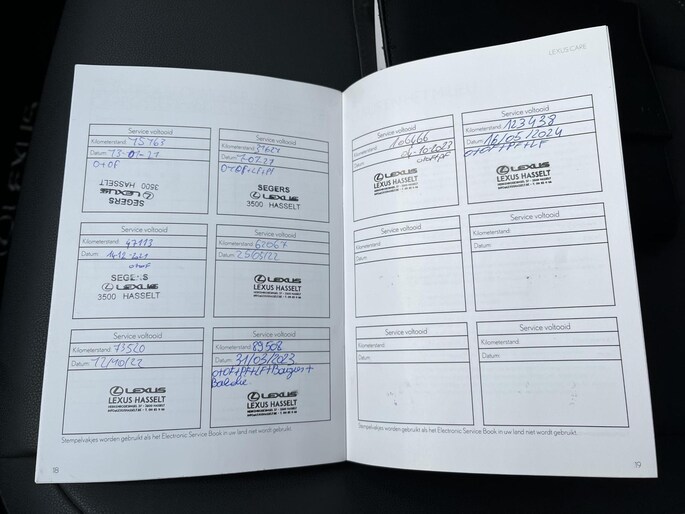 LEXUS CARE
Service voltooid
Kilometerstand: 15763
Datum: 13-01-21
O+OF
SEGERS
LEXUS
3500 HASSELT
Service voltooid
Kilometerstand:
Datum:
O+OF+LF+PF
SEGERS
LEXUS
3500 HASSELT
Service voltooid
Kilometerstand: 47113
Datum: 14-12-2021
O+OF
SEGERS
LEXUS
3500 HASSELT
Service voltooid
Kilometerstand: 62067
Datum: 25/05/22
LEXUS
LEXUS HASSELT
Service voltooid
Kilometerstand: 73520
Datum: 12/10/22
LEXUS
LEXUS HASSELT
Service voltooid
Kilometerstand: 89508
Datum: 31/03/2023
O+OF+PF+LF+Bougies+
LEXUS
LEXUS HASSELT
Stempelvakjes worden gebruikt als het Electronic Service Book in uw land niet wordt gebruikt.
18
Service voltooid
Kilometerstand: 106466
Datum: 04-10-2023
O+OF+PF
LEXUS
LEXUS HASSELT
Service voltooid
Kilometerstand: 123438
Datum: 16/05/2024
O+OF+PF+LF
LEXUS
LEXUS HASSELT
Service voltooid
Kilometerstand:
Datum:
Service voltooid
Kilometerstand:
Datum:
Service voltooid
Kilometerstand:
Datum:
Service voltooid
Kilometerstand:
Datum:
Stempelvakjes worden gebruikt als het Electronic Service Book in uw land niet wordt gebruikt.
19
LEXUS